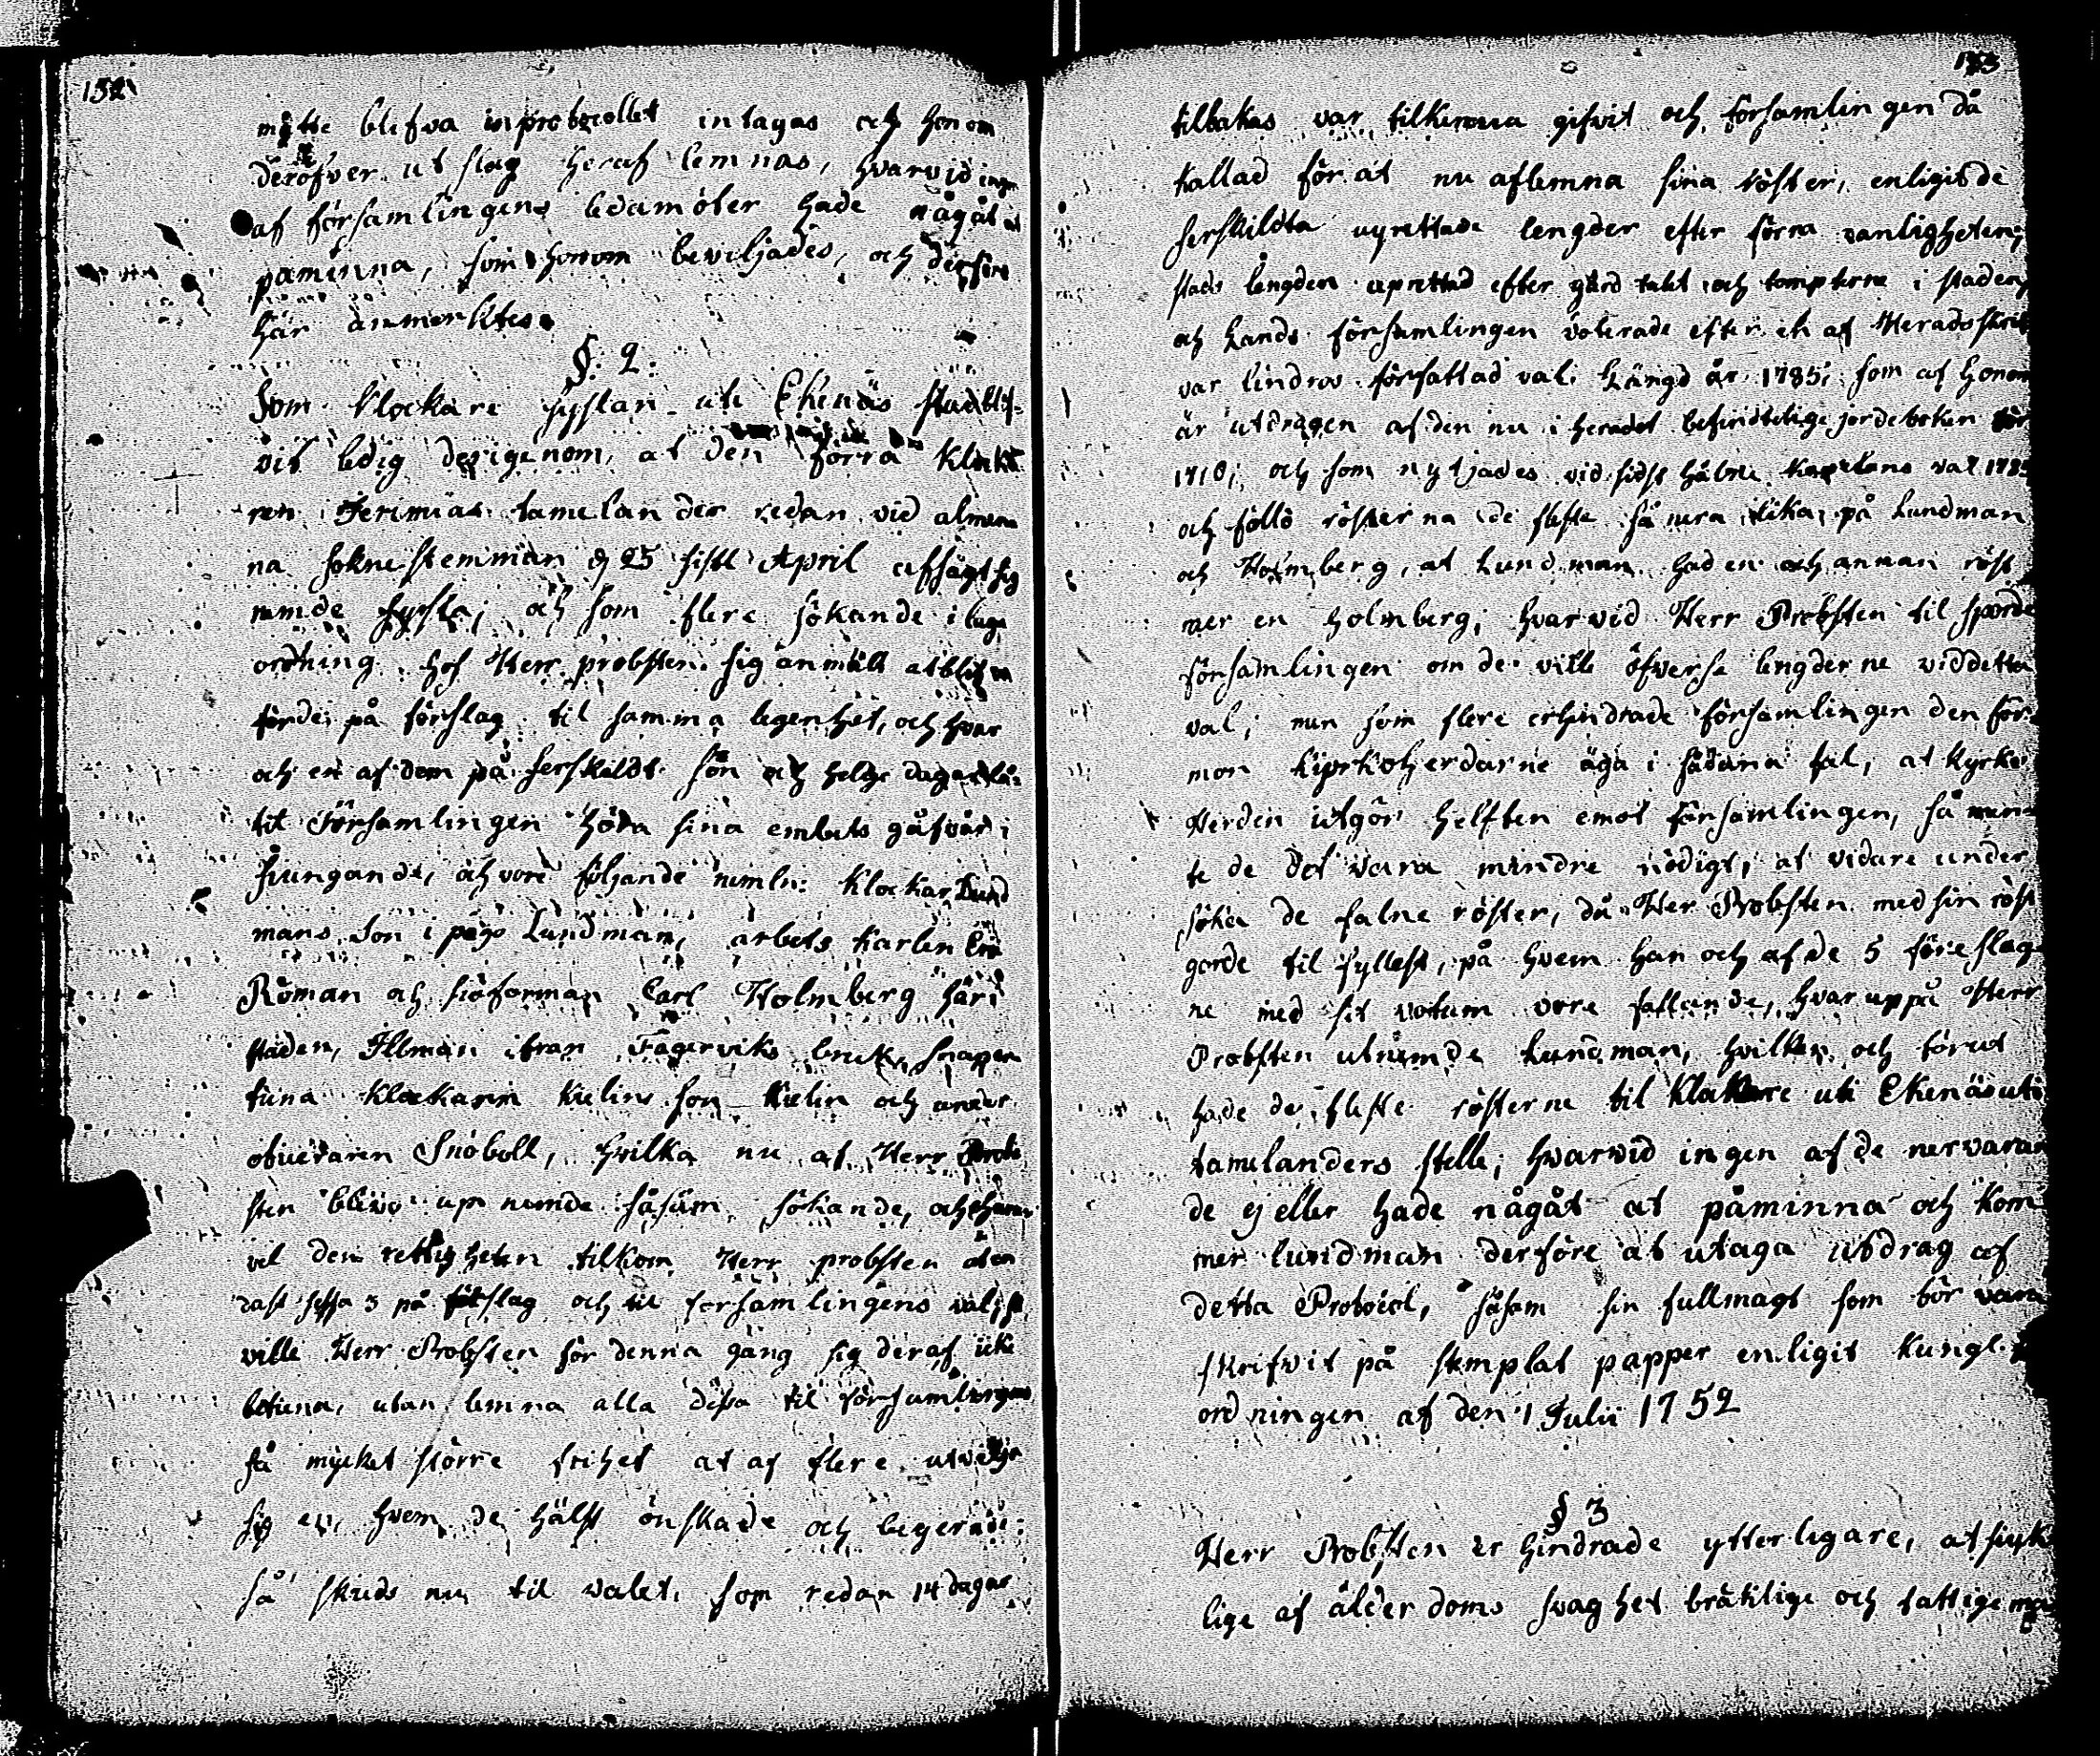 152
måtte blifva inprotocollet intagas och honom
deröfver utslag heraf lemnas, hvarvid
af församlingens ledamöter hade något at
påminna, som honom beviljades, och
här anmerktes.
§. 2.
Som klockare syslan uti Ekenäs stad
vit ledig derigenom, at den förra
ren Jerimias tamelander redan vid almena
na sokne stemman d 25 sistl April afsagt sig
nemde sysla; och som flere sökande i laga
ordning hos Herr probsten sig anmält at blifva
förde på förslag til samma legenhet, och hvar
och en af dem på serskildt sön och helge dagar lå-
tit Församlingen höra sina embets gåfvor i
siungande, och vore följande nemln: klockar Lund
mans Son i Lundman, arbets karlen
Röman och siöforman Carl Holmberg här i
staden, Illman ifran Fagerviks bruk, Snapper
tuna klockaren Kielins son Kielin och under
oficeraren Snöboll, hvilka nu af Herr Prob
sten blevo up nemde såsom sökande, och
vel den rettigheten tilkom Herr probsten at en
dast 3 på förslag och til församlingens val,
ville Herr Probsten för denna gång sig deraf icke
betiena, utan lemna alla dessa til församlingens
så mycket större frihet at af flere utvelja
sig en, hvem de hälst önskade och begerade:
så skreds nu til valet, som redan 14 dagar
153
tilbakas var tilkenna gifvit och församlingen då
kallad för at nu aflemna sina röster, enligit de
serskildta uprettade lengder efter förra vanligheten;
stads lengden uprettad efter gård talet och tompterne i staden,
och Lands församlingen voterade efter en af Herads
var lindros författad val Längd år 1785; som af honom
är utdragen af den nu i heradet befindtelige jordeboken för
1710; och som nytjades vid sidst hålne kapelans val 1785
och föllo rösterna de fleste så nera lika på Lundman
och Holmberg, at Lundman hade en och annan röst
mer en Holmberg; hvarvid Herr Probsten til sporde
församlingen om de ville öfverse lengderne vid detta
val; men som flere erhindrade församlingen den för-
mon kyrkoherdarne äga i sådana fal, at kyrko
Herden utgör helften emot församlingen, så men-
te de det vara mindre nödigt, at vidare under
söka de falne röster, då Her Probsten med sin röst
gorde til fyllest, på hvem han och af de 5 föreslag-
ne med sit votum vore fallande, hvaruppå Herr
Probsten utnemde Lundman, hvilken och förut
hade de fleste rösterne til klockare uti Ekenäs uti
tamelanders stelle; hvarvid ingen af de nervaran
de ej eller hade något at påminna och kom
mer lundman derföre at utaga utdrag af
detta Protocol, såsom sin fullmagt som bör vara
skrifvit på stemplat papper enligit kungl.
ordningen af den 1 Julii 1752
§ 3
Herr Probsten er hindrade ytterligare, at siuk
lige af ålderdoms svaghet bräklige och fattige